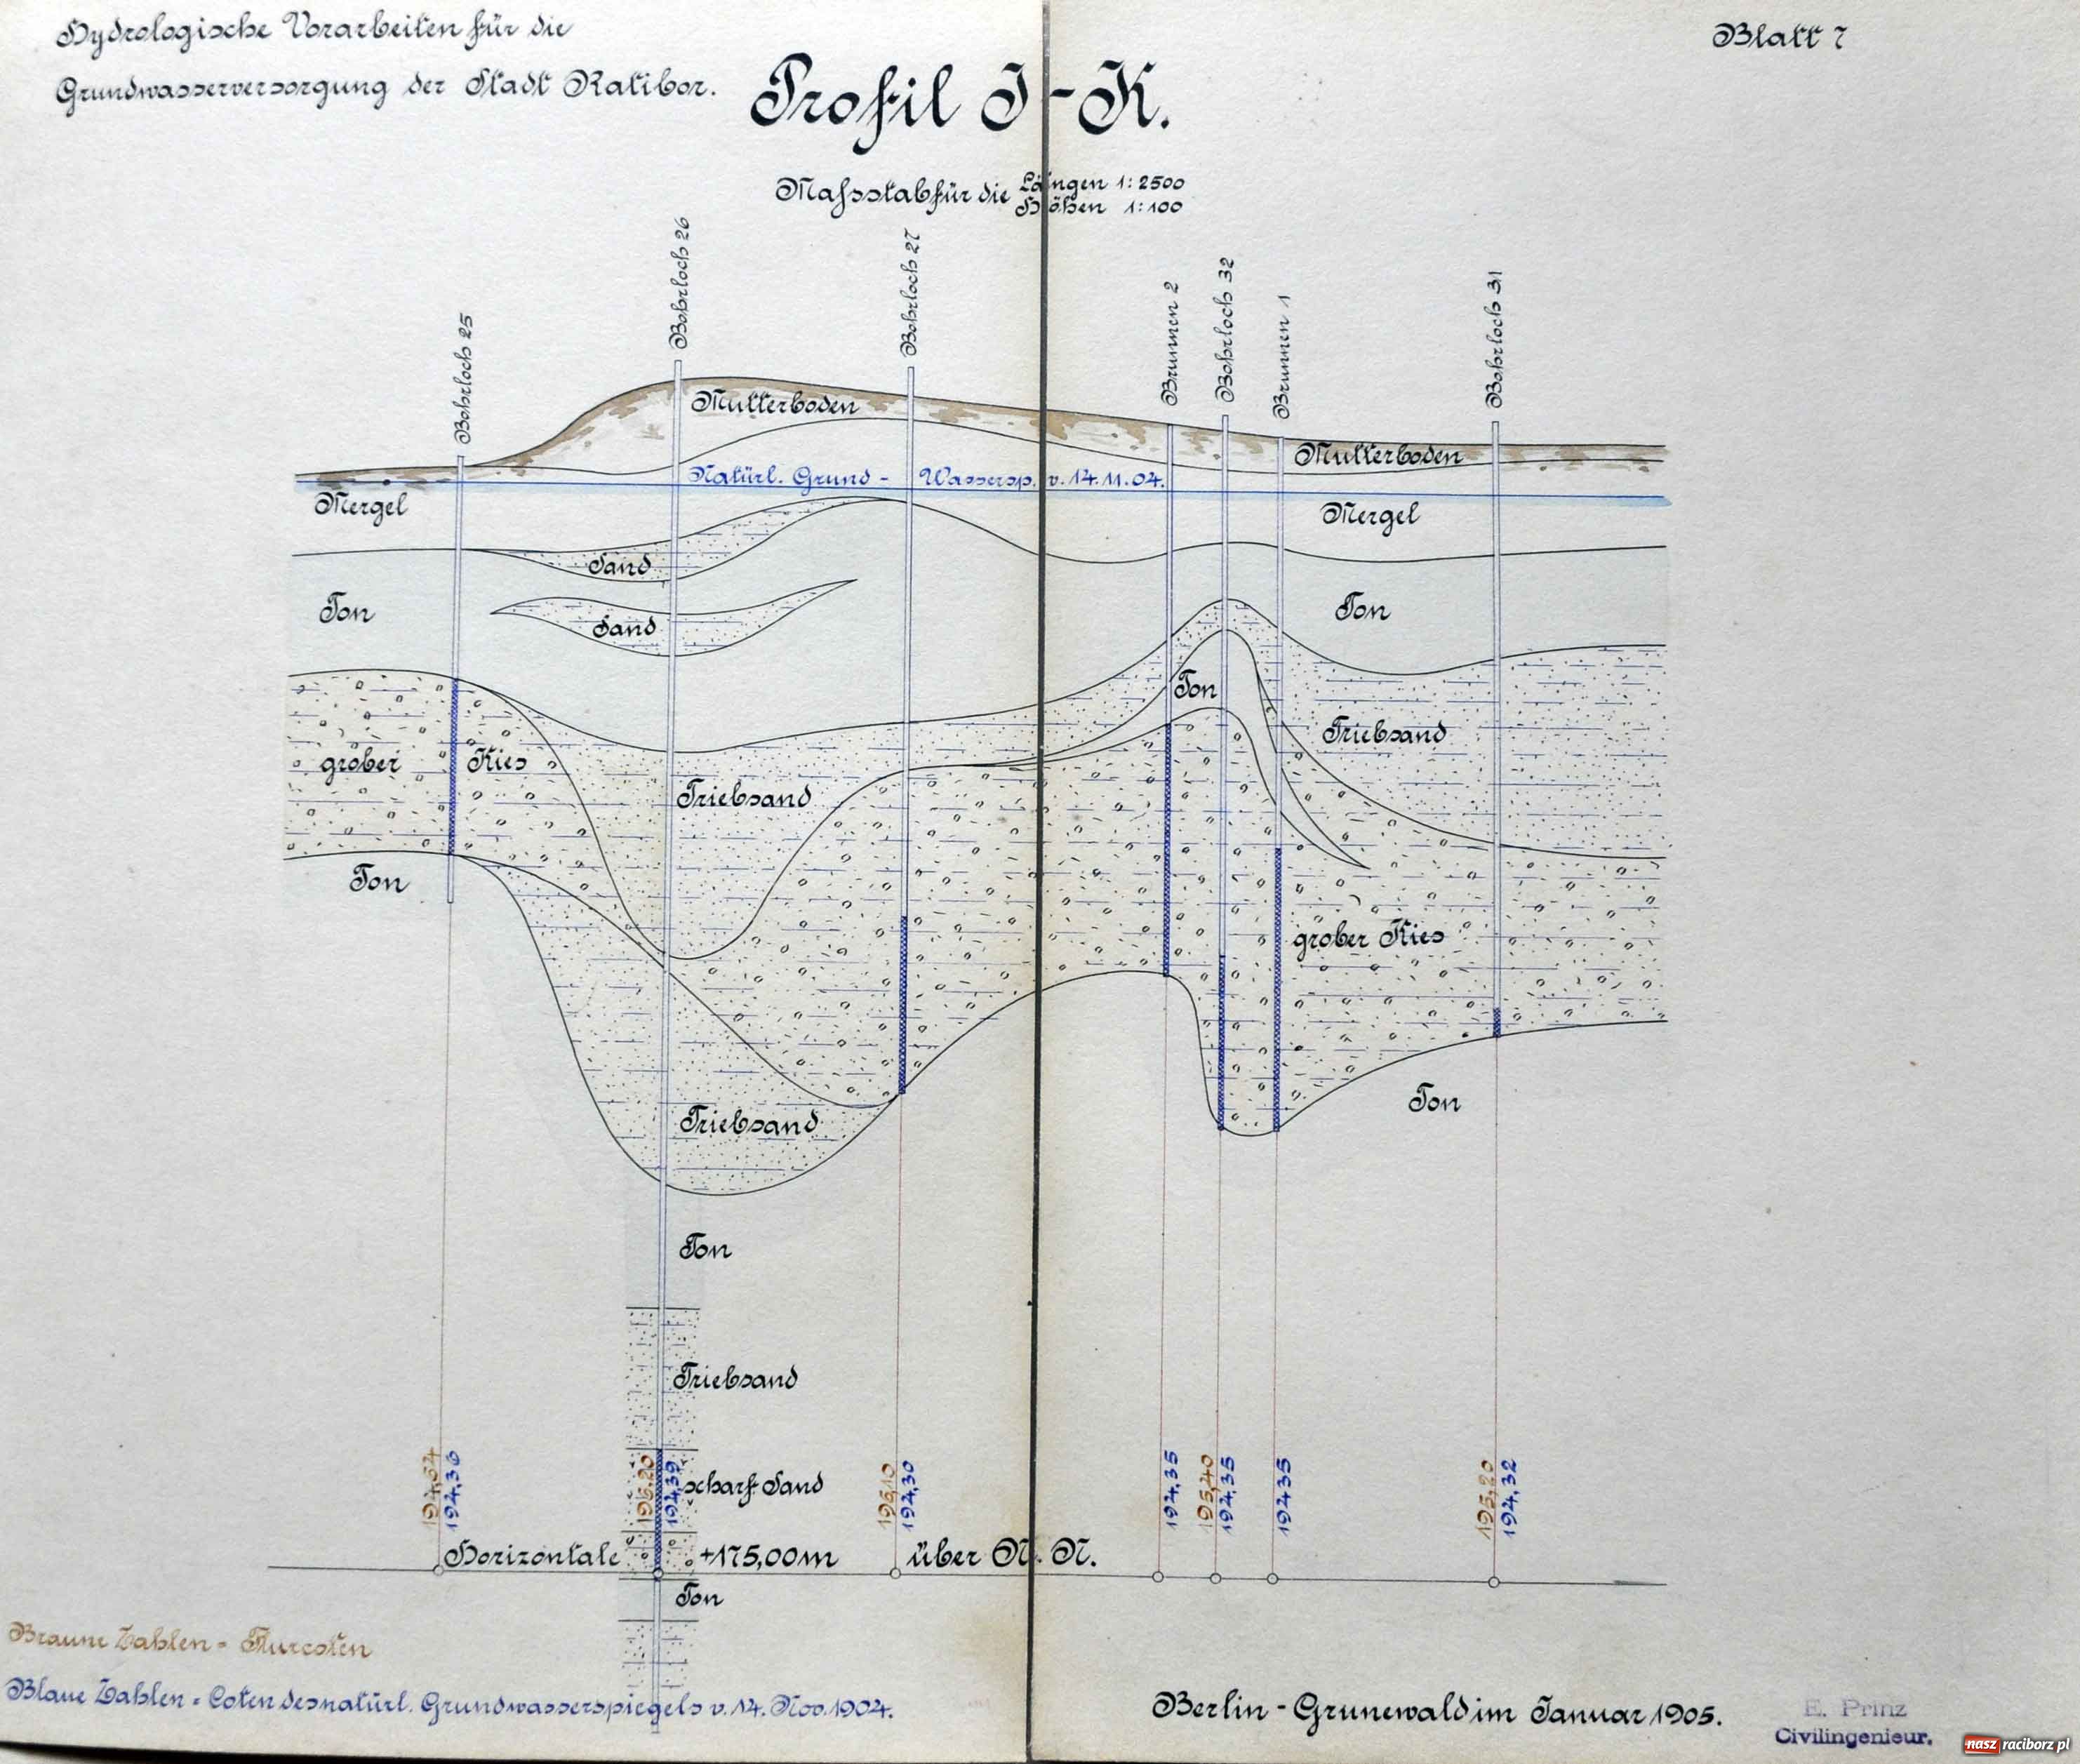 Hydrologische Vorarbeiten für die
Grundwasserversorgung der Stadt Ratibor.
Blatt 7
Profil I-K.
Mafsstab für die Längen 1:2500
Höhen 1:100
Bohrloch 25
Bohrloch 26
Bohrloch 27
Brunnen 2
Bohrloch 32
Brunnen 1
Bohrloch 31
Mutterboden
Mutterboden
Natürl. Grund- Wassersp. v. 14.11.04.
Mergel
Mergel
Sand
Ton
Sand
Ton
Ton
grober Kies
Triebsand
Triebsand
Ton
grober Kies
Triebsand
Ton
Ton
Triebsand
scharf. Sand
194,64
194,36
196,20
194,39
196,10
194,30
194,35
195,40
194,35
194 35
195,20
194,32
Horizontale +175,00m über N. N.
Ton
Braune Zahlen = Flurcoten
Blaue Zahlen = Coten des natürl. Grundwasserspiegels v. 14. Nov. 1904.
Berlin-Grunewald im Januar 1905.
E. Prinz
Civilingenieur.
nasz raciborz.pl